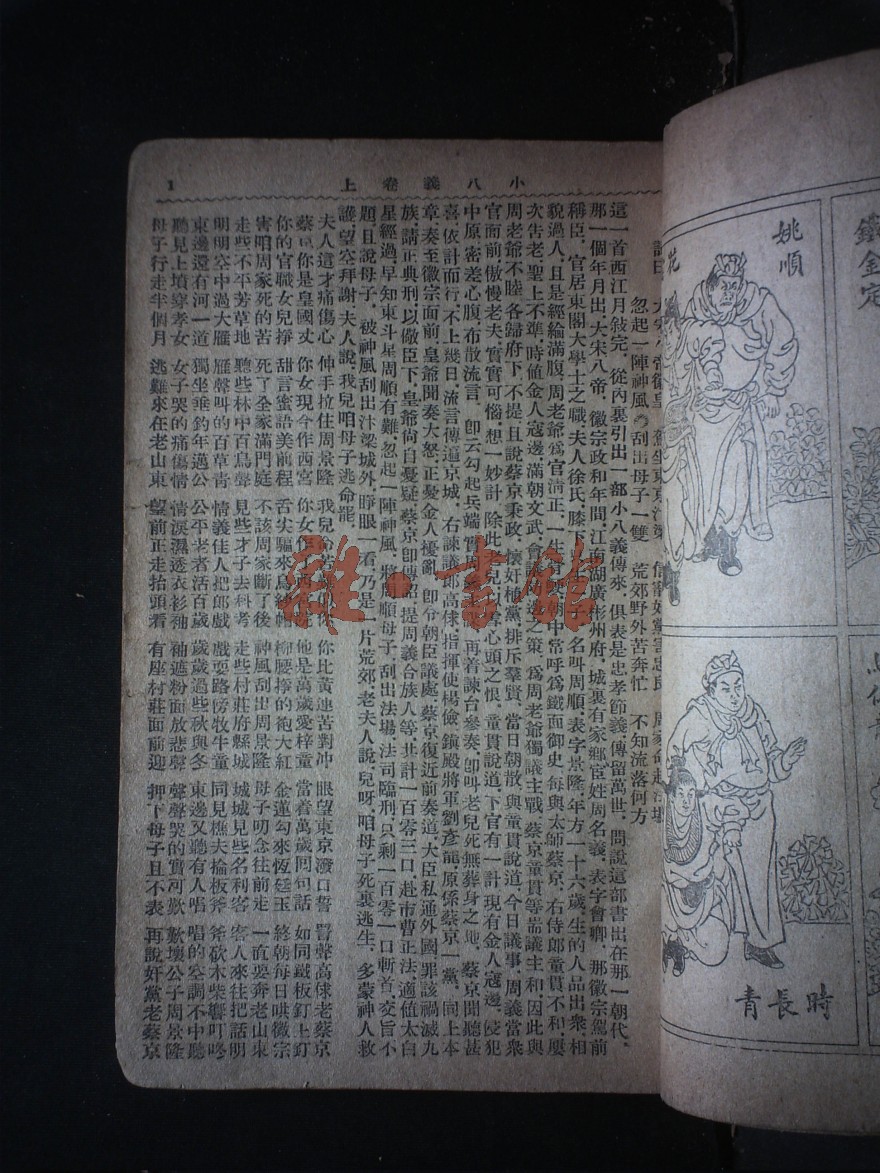 小八義卷上
1
忽起一陣神風 刮出母子一雙 荒郊野外苦奔忙 不知流落何方
這一首西江月敍完，從內裏引出一部小八義傳來，俱表是忠孝節義，傳留萬世，問說這部書出在那一朝代，
那一個年月，出大宋八帝，徽宗政和年間，江南湖廣彬州府，城裏有家鄉宦，姓周名義，表字會卿，那徽宗駕前
稱臣，官居東閣大學士之職，夫人徐氏，膝下 名叫周順，表字景隆，年方一十六歲，生的人品出衆，相
貌過人，且是經綸滿腹，周老爺爲官淸正，一生 朝中常呼爲鐵面御史，每與太師蔡京，右侍郎童貫不和，屢
次告老，聖上不準，時値金人寇邊，滿朝文武，會議 邊之策，爲周老爺獨議主戰，蔡京童貫等耑議主和，因此與
周老爺不睦，各歸府下，不提，且說蔡京秉政，懷奸植黨，排斥羣賢，當日朝散，與童貫說道，今日議事，周義當衆
官面前，傲慢老夫，實實可惱，想一妙計，除此 兒 心頭之恨，童貫說道，下官有一計，現有金人寇邊，侵犯
中原，密差心腹，布散流言，卽云勾起兵端，實 再着諫台參奏，卽叫老兒死無葬身之地，蔡京聞聽甚
喜，依計而行，不上幾日，流言傳遍京城，右諫議郎高俅，指揮使楊儉，鎭殿將軍劉彥龍，原係蔡京一黨，同上本
章，奏至徽宗面前，皇爺聞奏大怒，正憂金人擾亂，卽令朝臣議處，蔡京復近前奏道，大臣私通外國，罪該禍滅九
族，請正典刑，以儆臣下，皇爺尙自憂疑，蔡京卽傳詔，提周義合族人等，共計一百零三口，赴市曹正法，適値太白
星經過，早知東斗星周順有難，忽起一陣神風，將周順母子，刮出法場，法司臨刑，只剩一百零一口斬首，交旨不
題，且說母子，被神風刮出汴梁城外，睜眼一看，乃是一片荒郊，老夫人說，兒呀，咱母子死裏逃生，多蒙神人救
護，望空拜謝，夫人說，我兒咱母子逃命罷，
夫人這才痛傷心 伸手拉住周景隆 你比黃連苦對冲 眼望東京潑口誓 詈聲高俅老蔡京
蔡京你是皇國丈 你女現今作西宮 他是萬歲愛梓童 當着萬歲問句話 如同鐵板釘上釘
你的官職女兒掙 甜言蜜語美前程 舌尖驅來烏紗帽 柳腰擰的袍大紅 金蓮勾來恆廷玉 終朝每日哄徽宗
害咱周家死的苦 死了全家滿門庭 不該周家斷了後 神風刮出周景隆 母子叨念往前走 一直要奔老山東
走些不平芳草地 聽些林中百鳥聲 見些才子去科考 走些村莊府縣城 城城見些名利客 客人來往把話明
明明空中過大雁 雁聲叫的百草青 情義佳人把郎戲 戲耍路傍牧牛童 同見樵夫掄板斧 斧砍木柴響叮咚
東邊還有河一道 獨坐垂釣年邁公 公平老者活百歲 歲歲過些秋與冬 東邊又聽有人唱 唱的空調不中聽
聽見上墳穿孝女 女子哭的痛傷情 情淚濕透衣衫袖 袖遮粉面放悲聲 聲聲哭的實可歎 歎壞公子周景隆
母子行走半個月 逃難來在老山東 望前正走抬頭看 有座村莊面前迎 押下母子且不表 再說奸黨老蔡京
姚順
時長青
雜·書館